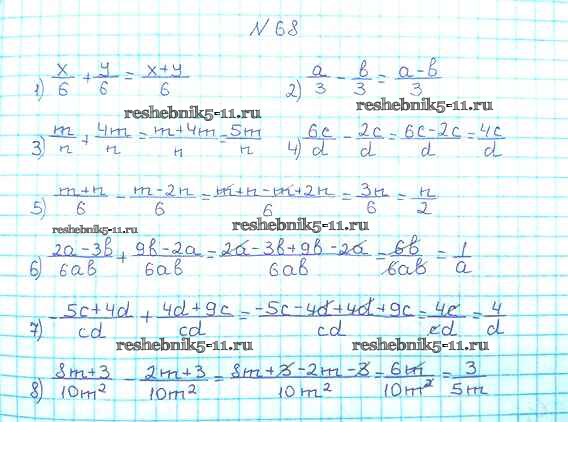 N 68
1) x/6 + y/6 = x+y/6 2) a/3 - b/3 = a-b/3
reshebnik5-11.ru
3) m/n + 4m/n = m+4m/n = 5m/n 4) 6c/d - 2c/d = 6c-2c/d = 4c/d
5) m+n/6 - m-2n/6 = m+n-m+2n/6 = 3n/6 = n/2
reshebnik5-11.ru reshebnik5-11.ru
6) 2a-3b/6ab + 9b-2a/6ab = 2a-3b+9b-2a/6ab = 6b/6ab = 1/a
7) - 5c+4d/cd + 4d+9c/cd = -5c-4d+4d+9c/cd = 4c/cd = 4/d
reshebnik5-11.ru reshebnik5-11.ru
8) 8m+3/10m² - 2m+3/10m² = 8m+3-2m-3/10m² = 6m/10m² = 3/5m